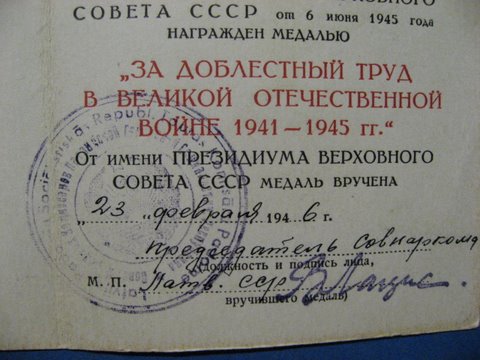 СОВЕТА СССР от 6 июня 1945 года
НАГРАЖДЕН МЕДАЛЬЮ
„ЗА ДОБЛЕСТНЫЙ ТРУД
В ВЕЛИКОЙ ОТЕЧЕСТВЕННОЙ
ВОЙНЕ 1941—1945 гг.“
От имени ПРЕЗИДИУМА ВЕРХОВНОГО
СОВЕТА СССР МЕДАЛЬ ВРУЧЕНА
„23 „ февраля 1946 г.
Председатель Совнаркома
(должность и подпись лица,
М. П. Латв. ССР В Лацис
вручившего медаль)